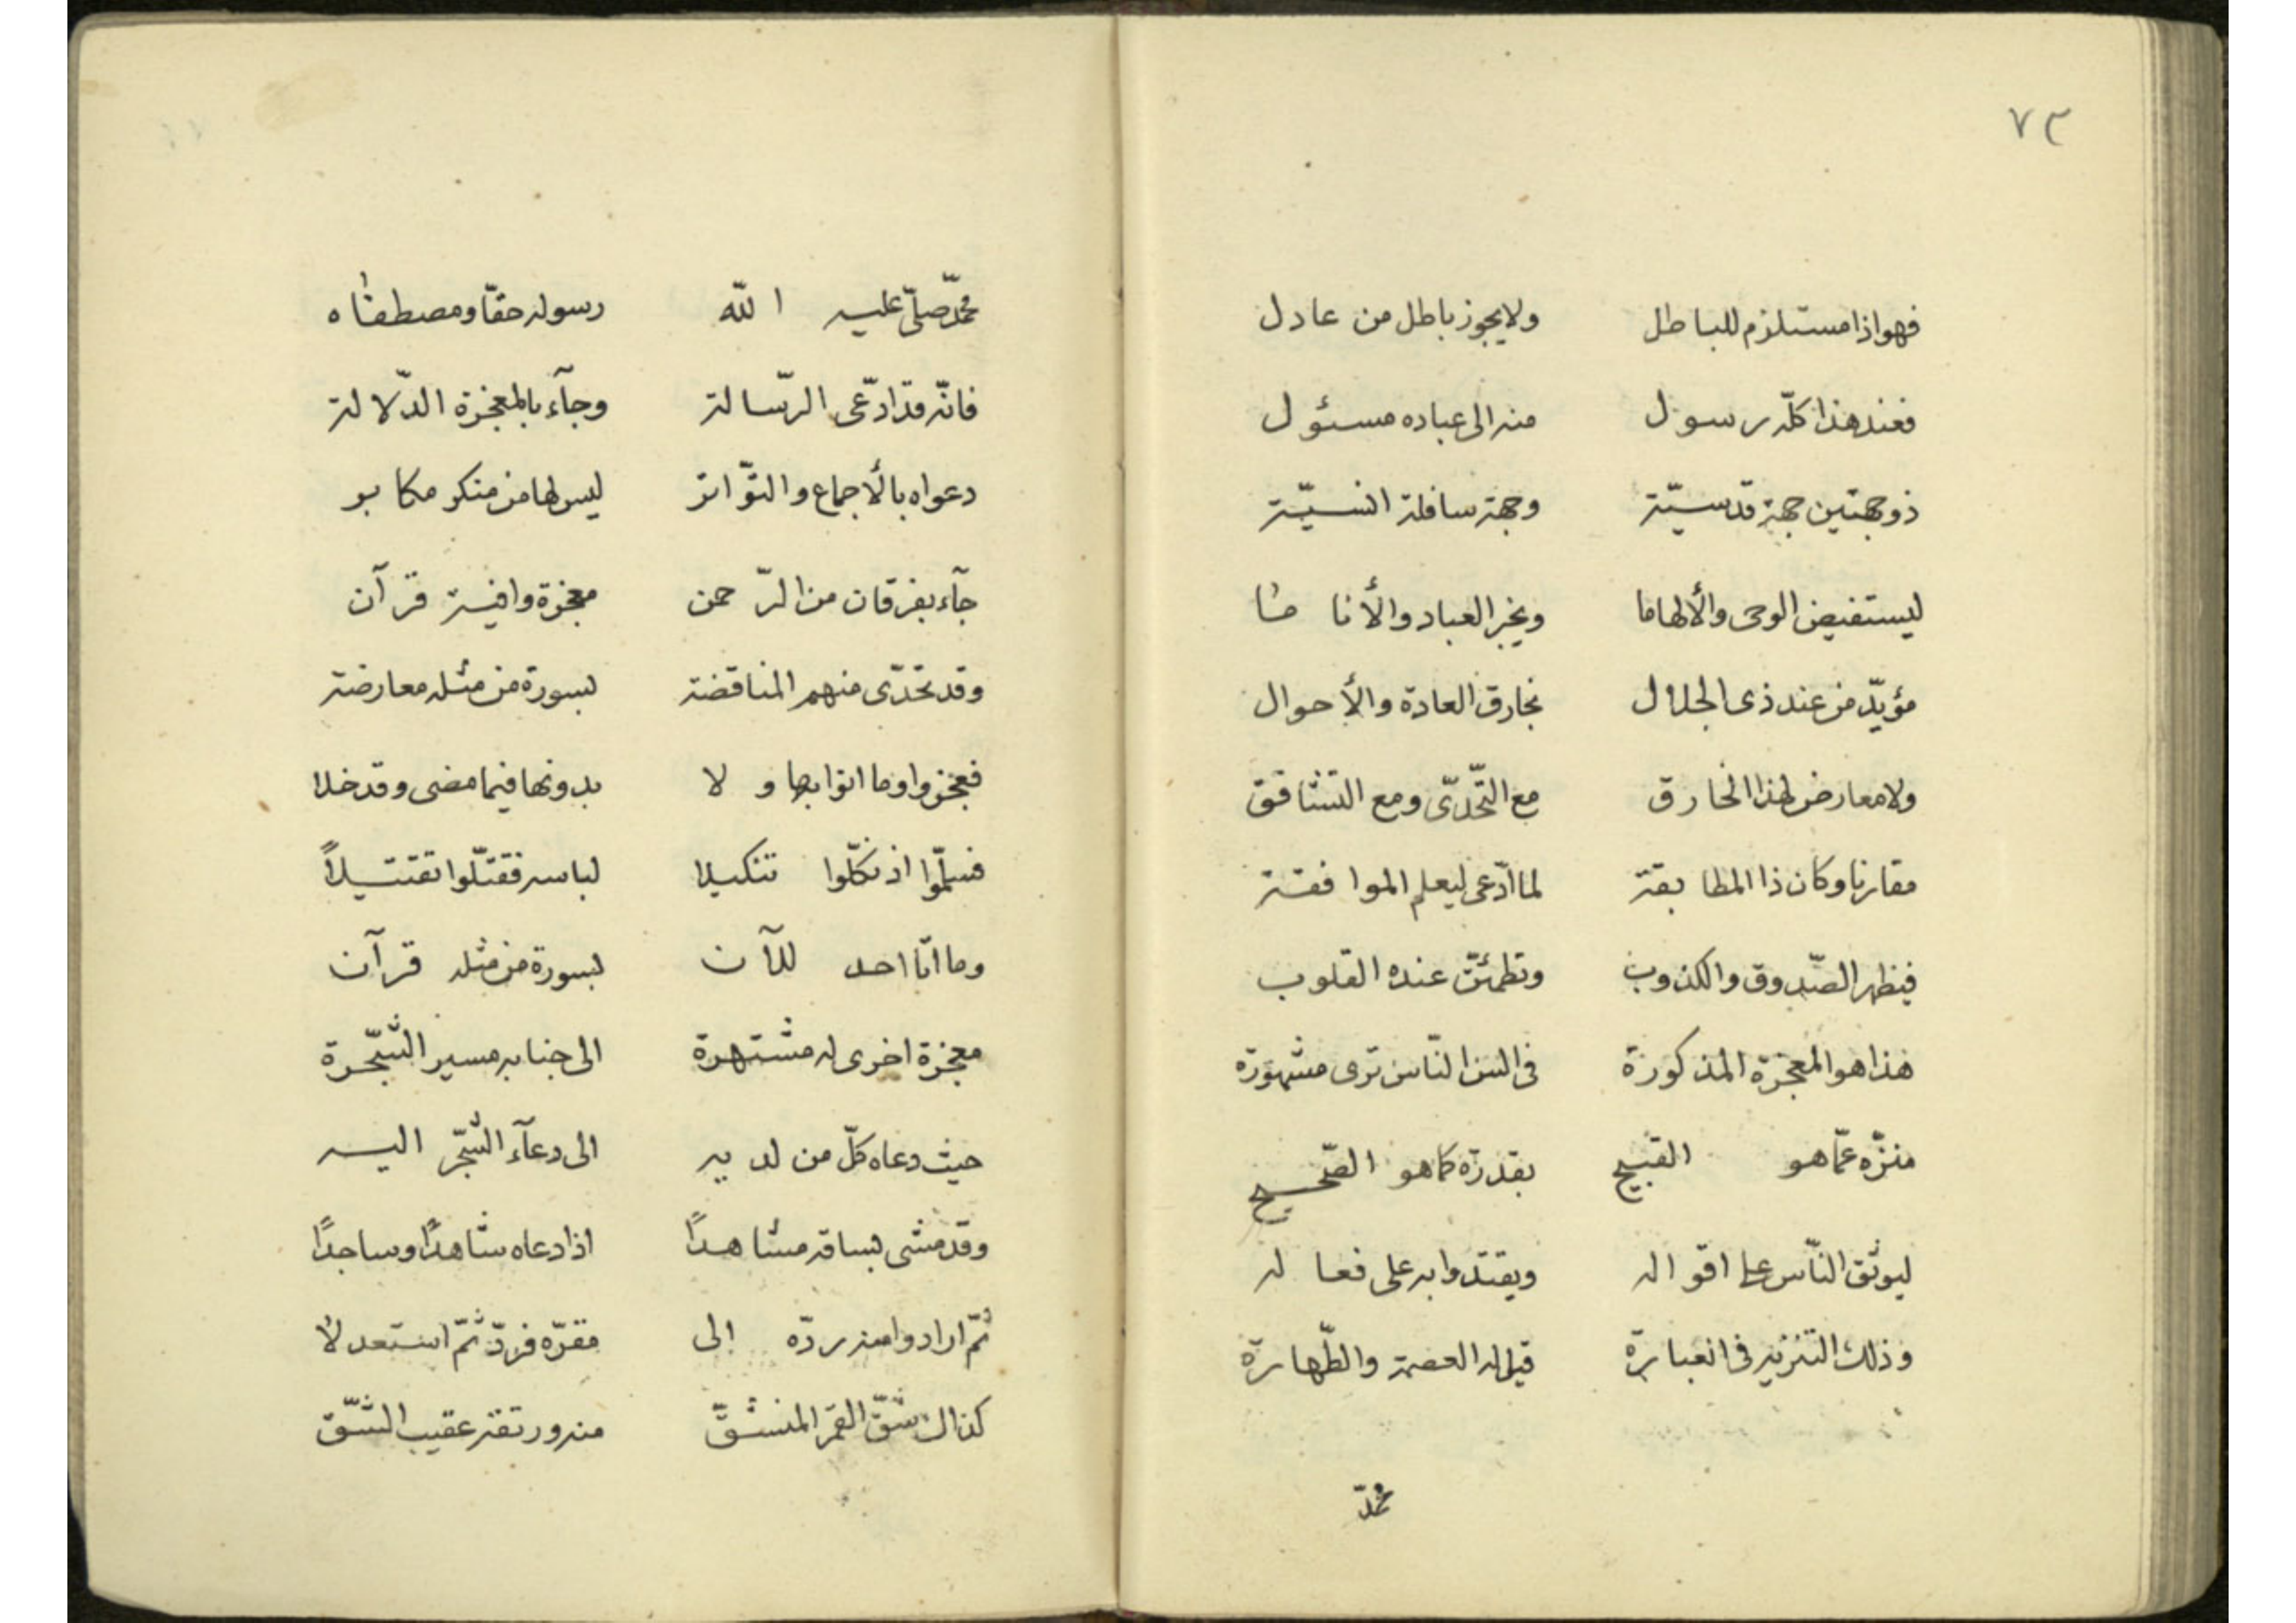 ٧٣
فهو اذا مستلزم للباطل ولا يجوز باطل من عادل
فعند هذا كلّه رسول منه الى عباده مسئول
ذو جهتين جهة قدسيّة وجهة سافلة انسيّة
ليستفيض الوحى والألهاما ويخبر العباد والأناما
مؤيّد من عند ذى الجلال بخارق العادة والأحوال
ولا معارض لهذا الخارق مع التّحدّى ومع التشاقق
مقارنا وكان ذا المطابقة لما ادّعى ليعلم الموافقة
فيظهر الصّدوق والكذوب وتطمئنّ عنده القلوب
هذا هو المعجزة المذكورة فى السن النّاس ترى مشهورة
منزّه عمّا هو القبيح بقدرة كما هو الصّحيح
ليوثق النّاس على اقواله ويقتدوا به على فعاله
وذلك التنزيه فى العبارة قيل له العصمة والطّهارة
محمّد
محمّد صلّى عليه اللّه رسوله حقّا ومصطفاه
فانّه قد ادّعى الرّسالة وجآء بالمعجزة الدّلالة
دعواه بالأجماع والتّواتر ليس لها من منكر مكابر
جآء بفرقان من الرّحمن معجزة وافية قرآن
وقد تحدّى منهم المناقضة بسورة من مثله معارضة
فعجزوا وما اتوا بها ولا بدونها فيما مضى وقد خلا
فسلّموا اذ نكّلوا تنكيلا لباسه فقتّلوا تقتيلاً
وما اتا احد للآن بسورة من مثله قرآن
معجزة اخرى له مشتهرة الى جنابه مسير الشّجرة
حيث دعاه كلّ من لديه الى دعآء الشّجر اليه
وقد مشى بساقه مشاهداً اذا دعاه شاهداً وساجداً
ثمّ ارادوا منه ردّه الى مقرّه فردّ ثمّ استعدلا
كذاك شقّ القمر المنشقّ منه ورتقه عقيب الشّقّ